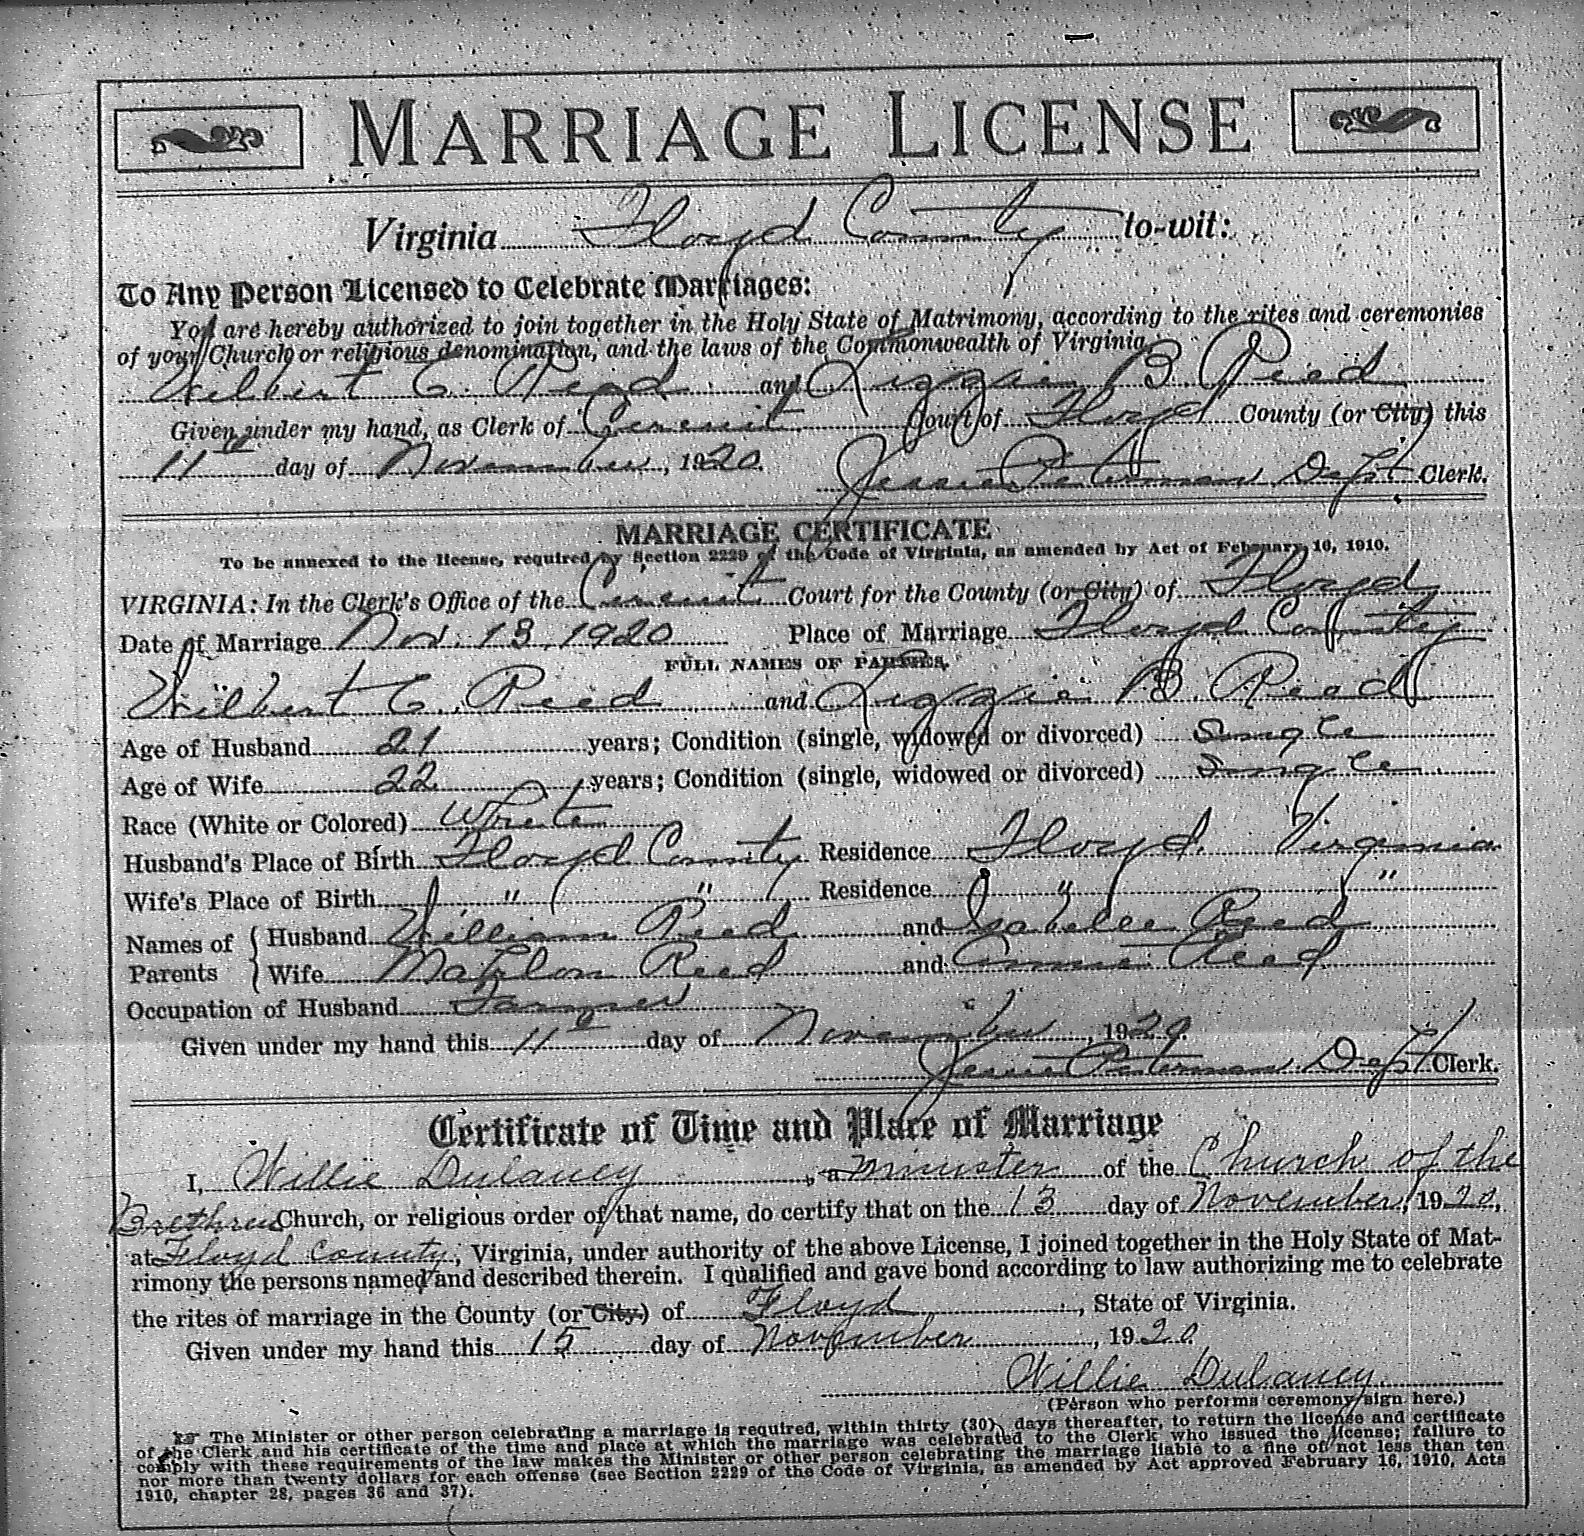 MARRIAGE LICENSE
Virginia Floyd County to-wit:
To Any Person Licensed to Celebrate Marriages:
You are hereby authorized to join together in the Holy State of Matrimony, according to the rites and ceremonies
of your Church or religious denomination, and the laws of the Commonwealth of Virginia,
Wilbert C. Reed and Lizzie B Reed
Given under my hand, as Clerk of Circuit Court of Floyd County (or City) this
11th day of November, 1920. Jessie Peterman Dept Clerk.
MARRIAGE CERTIFICATE
To be annexed to the license, required by Section 2229 of the Code of Virginia, as amended by Act of February 16, 1910.
VIRGINIA: In the Clerk's Office of the Circuit Court for the County (or City) of Floyd
Date of Marriage Nov. 13, 1920 Place of Marriage Floyd County
FULL NAMES OF PARTIES.
Wilbert C. Reed and Lizzie B Reed
Age of Husband 21 years; Condition (single, widowed or divorced) Single
Age of Wife 22 years; Condition (single, widowed or divorced) Single
Race (White or Colored) White
Husband's Place of Birth Floyd County Residence Floyd. Virginia
Wife's Place of Birth " " Residence " "
Names of Parents { Husband William Reed and Isabelle Reed
Wife Mahlon Reed and Annie Reed
Occupation of Husband Farmer
Given under my hand this 11th day of November, 1920.
Jessie Peterman Dept Clerk.
Certificate of Time and Place of Marriage
I, Willie Dulaney, a minister of the Church of the
Brethren Church, or religious order of that name, do certify that on the 13 day of November, 1920,
at Floyd County, Virginia, under authority of the above License, I joined together in the Holy State of Mat-
rimony the persons named and described therein. I qualified and gave bond according to law authorizing me to celebrate
the rites of marriage in the County (or City) of Floyd, State of Virginia.
Given under my hand this 15 day of November, 1920.
Willie Dulaney.
(Person who performs ceremony sign here.)
The Minister or other person celebrating a marriage is required, within thirty (30) days thereafter, to return the license and certificate
of the Clerk and his certificate of the time and place at which the marriage was celebrated to the Clerk who issued the license; failure to
comply with these requirements of the law makes the Minister or other person celebrating the marriage liable to a fine of not less than ten
nor more than twenty dollars for each offense (see Section 2229 of the Code of Virginia, as amended by Act approved February 16, 1910, Acts
1910, chapter 28, pages 36 and 37).